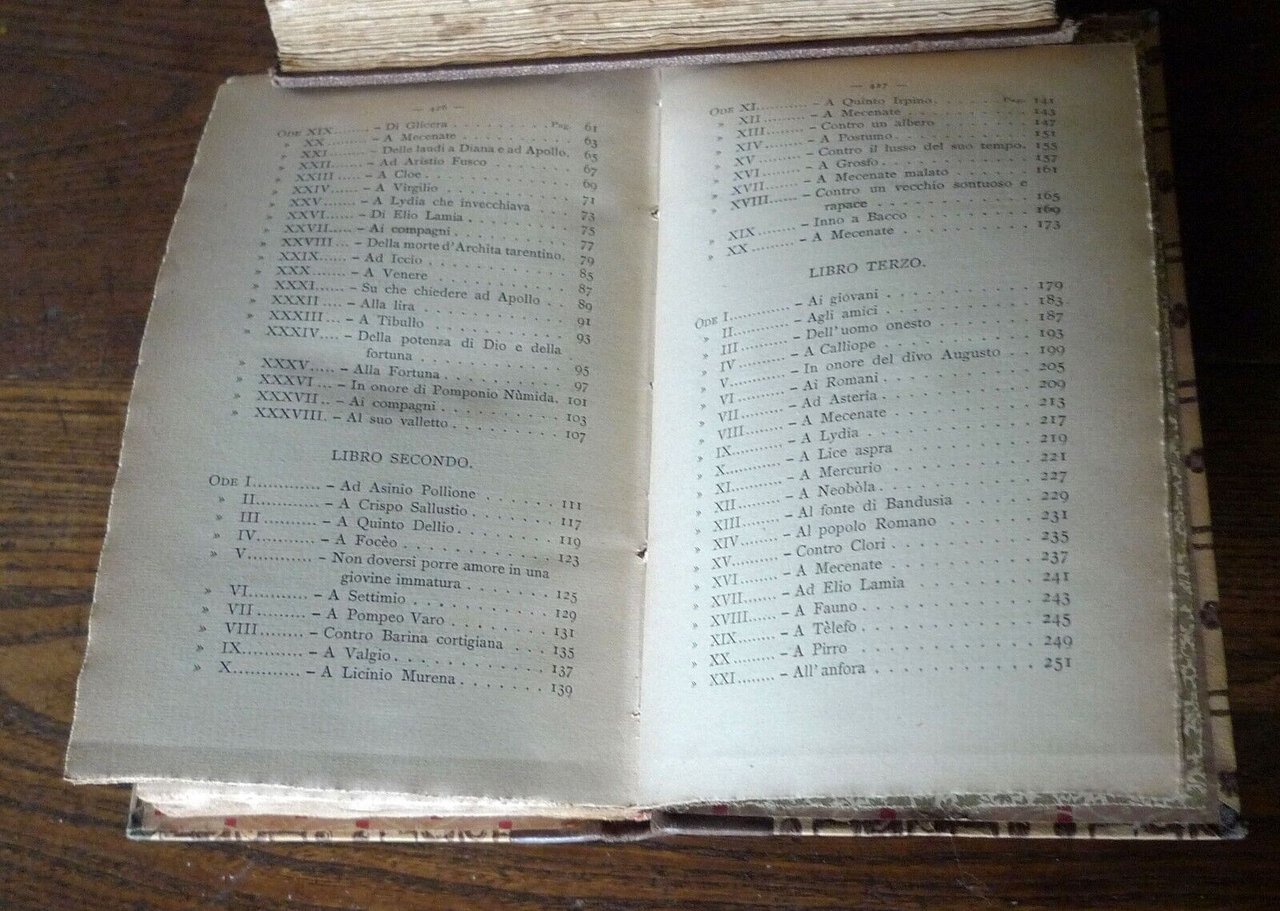 — 426 —
ODE XIX........ – Di Glicera . . . . . . . . . Pag. 61
» XX ........ – A Mecenate . . . . . . . . . . 63
» XXI........ – Delle laudi a Diana e ad Apollo. 65
» XXII....... – Ad Aristio Fusco . . . . . . . 67
» XXIII ..... – A Cloe . . . . . . . . . . . . 69
» XXIV....... – A Virgilio . . . . . . . . . . 71
» XXV........ – A Lydia che invecchiava . . . 73
» XXVI....... – Di Elio Lamia . . . . . . . . 75
» XXVII...... – Ai compagni . . . . . . . . . 77
» XXVIII ... – Della morte d'Archita tarentino. 79
» XXIX...... – Ad Iccio . . . . . . . . . . . 85
» XXX....... – A Venere . . . . . . . . . . . 87
» XXXI...... – Su che chiedere ad Apollo . . 89
» XXXII .... – Alla lira . . . . . . . . . . 91
» XXXIII ... – A Tibullo . . . . . . . . . . 93
» XXXIV.... – Della potenza di Dio e della
fortuna . . . . . . . . . . . . 95
» XXXV..... – Alla Fortuna . . . . . . . . . 97
» XXXVI ... – In onore di Pomponio Nùmida. 101
» XXXVII .. – Ai compagni . . . . . . . . . 103
» XXXVIII. – Al suo valletto . . . . . . . . 107
LIBRO SECONDO.
ODE I............ – Ad Asinio Pollione . . . . . . 111
» II........... – A Crispo Sallustio . . . . . . 117
» III .......... – A Quinto Dellio . . . . . . . 119
» IV........... – A Focèo . . . . . . . . . . . 123
» V............ – Non doversi porre amore in una
giovine immatura . . . . . . . 125
» VI........... – A Settimio . . . . . . . . . . 129
» VII ......... – A Pompeo Varo . . . . . . . . 131
» VIII........ – Contro Barina cortigiana . . . 135
» IX........... – A Valgio . . . . . . . . . . . 137
» X............ – A Licinio Murena . . . . . . . 139
— 427 —
ODE XI.......... – A Quinto Irpino . . . . . . Pag. 141
» XII ......... – A Mecenate . . . . . . . . . . 143
» XIII ........ – Contro un albero . . . . . . . 147
» XIV ......... – A Postumo . . . . . . . . . . 151
» XV .......... – Contro il lusso del suo tempo. 155
» XVI ......... – A Grosfo . . . . . . . . . . . 157
» XVII........ – A Mecenate malato . . . . . . 161
» XVIII....... – Contro un vecchio sontuoso e
rapace . . . . . . . . . . . . 165
» XIX ......... – Inno a Bacco . . . . . . . . . 169
» XX........... – A Mecenate . . . . . . . . . . 173
LIBRO TERZO.
ODE I............ – Ai giovani . . . . . . . . . . 179
» II........... – Agli amici . . . . . . . . . . 183
» III .......... – Dell'uomo onesto . . . . . . . 187
» IV .......... – A Calliope . . . . . . . . . . 193
» V............ – In onore del divo Augusto . . 199
» VI .......... – Ai Romani . . . . . . . . . . 205
» VII ......... – Ad Asteria . . . . . . . . . . 209
» VIII........ – A Mecenate . . . . . . . . . . 213
» IX........... – A Lydia . . . . . . . . . . . 217
» X............ – A Lice aspra . . . . . . . . . 219
» XI........... – A Mercurio . . . . . . . . . . 221
» XII ......... – A Neobòla . . . . . . . . . . . 227
» XIII........ – Al fonte di Bandusia . . . . . 229
» XIV ........ – Al popolo Romano . . . . . . . 231
» XV.......... – Contro Clori . . . . . . . . . 235
» XVI ........ – A Mecenate . . . . . . . . . . 237
» XVII....... – Ad Elio Lamia . . . . . . . . 241
» XVIII...... – A Fauno . . . . . . . . . . . 243
» XIX ........ – A Tèlefo . . . . . . . . . . . 245
» XX ......... – A Pirro . . . . . . . . . . . 249
» XXI ........ – All'anfora . . . . . . . . . . 251